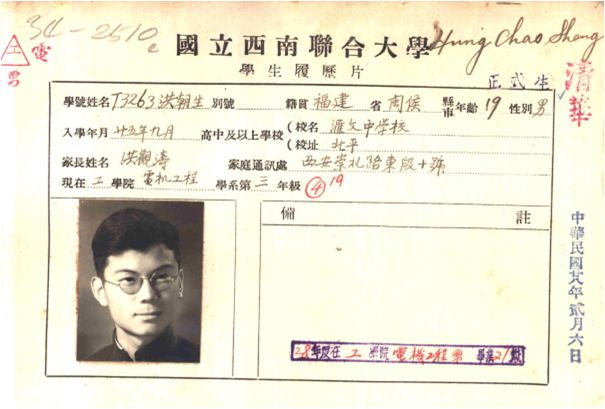 34-2510
電
工
男
國立西南聯合大學
Hung Chao Sheng
學生履歷片
正式生
清華
學號姓名 T3263 洪朝生 別號 籍貫 福建 省 閩侯 縣市 年齡 19 性別 男
入學年月 廿五年九月 高中及以上學校 (校名 滙文中學校
(校址 北平
家長姓名 洪觀濤 家庭通訊處 西安崇礼路東段十號
現在 工 學院 電机工程 學系第 三 年級 ④ 19
備 註
28年度在 工 學院 電機工程系 畢業
中華民國廿八年貳月六日